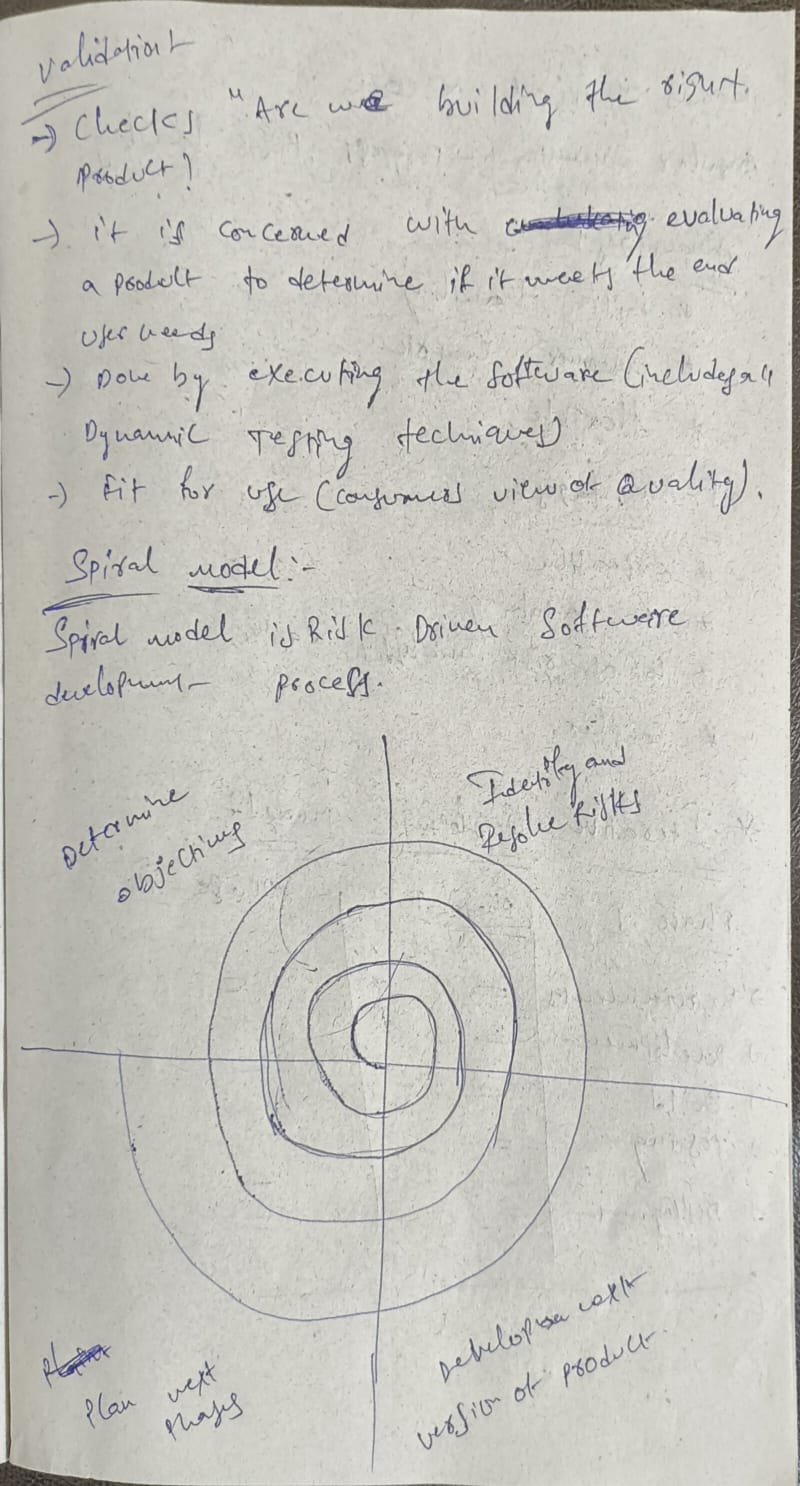 Validation:-
→ Checks "Are we building the right.
product?
→ it is concerned with evaluating
a product to determine if it meets the end
user needs
→ Done by executing the software (includes all
Dynamic Testing techniques)
→ Fit for use (consumers view of Quality).
Spiral model:-
Spiral model is Risk Driven Software
development process.
Determine
objectives
Identify and
Resolve Risks
Plan next
Phases
Develop next
version of product